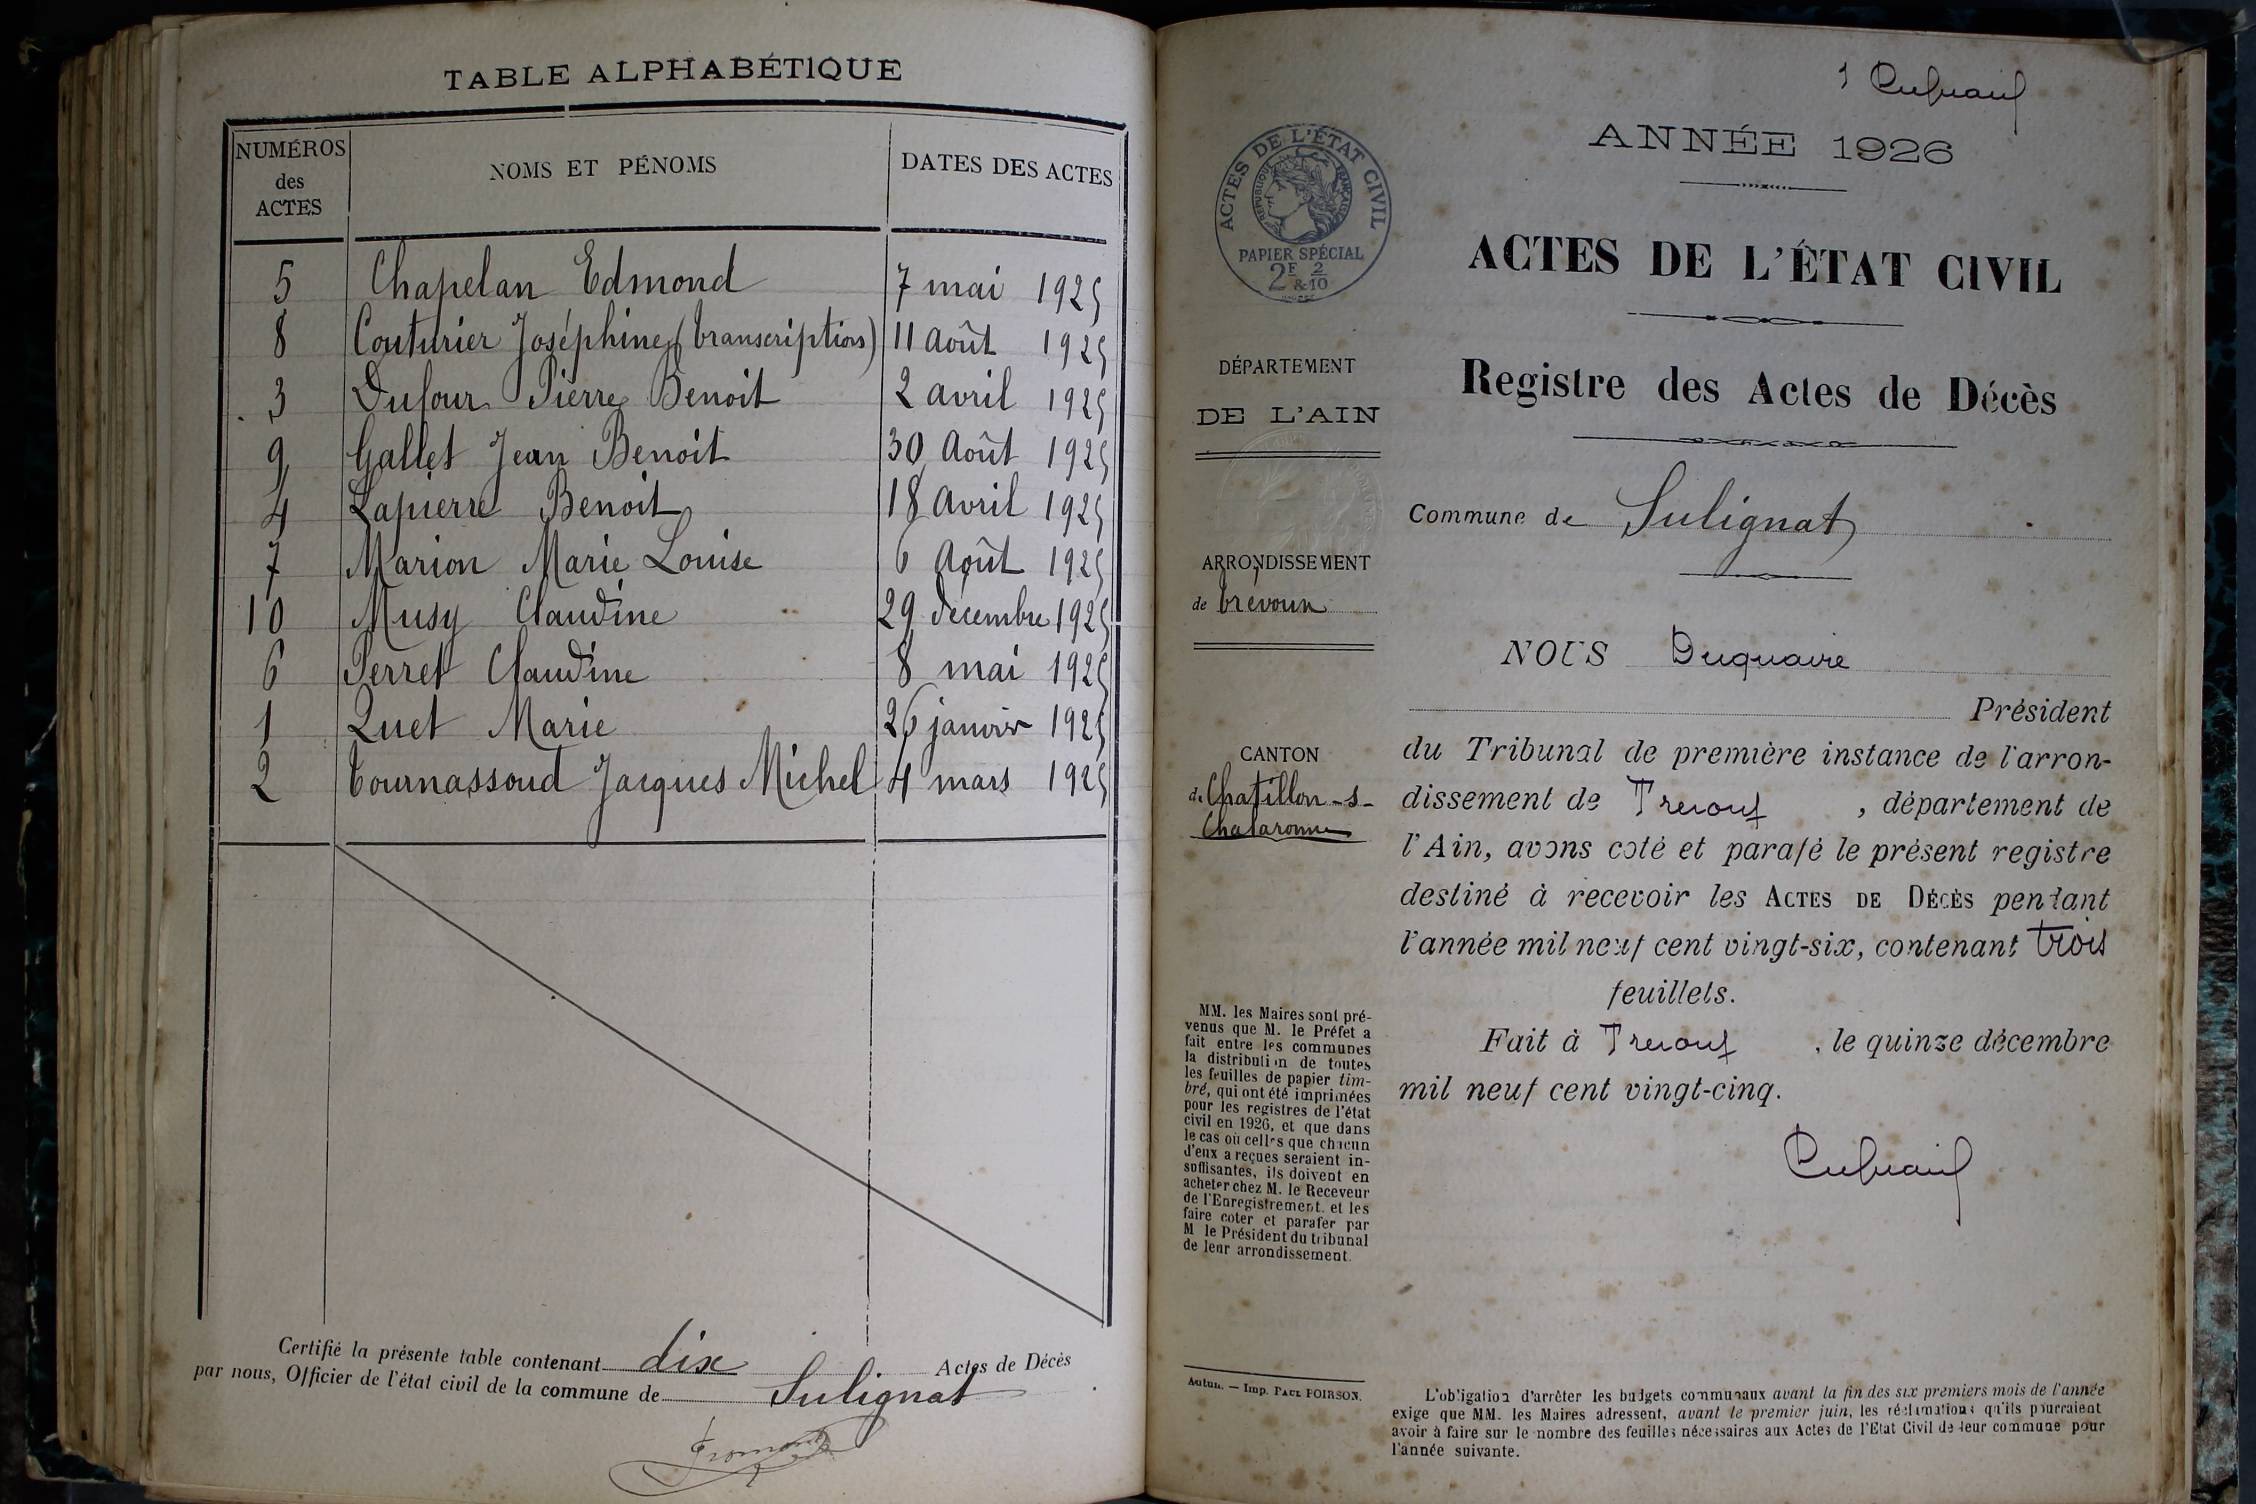 TABLE ALPHABÉTIQUE
NUMÉROS des ACTES | NOMS ET PÉNOMS | DATES DES ACTES
5 Chapelan Edmond 7 mai 1925
8 Couturier Joséphine (transcription) 11 Août 1925
3 Dufour Pierre Benoit 2 avril 1925
9 Gallet Jean Benoit 30 Août 1925
4 Lapierre Benoit 18 Avril 1925
7 Marion Marie Louise 6 Août 1925
10 Musy Claudine 29 décembre 1925
6 Perret Claudine 8 mai 1925
1 Quet Marie 26 janvier 1925
2 Tournassoud Jacques Michel 4 mars 1925
Certifié la présente table contenant dix Actes de Décès
par nous, Officier de l'état civil de la commune de Sulignat
1
ANNÉE 1926
ACTES DE L'ÉTAT CIVIL
RÉPUBLIQUE FRANÇAISE
PAPIER SPÉCIAL
2F & 2/10
ACTES DE L'ÉTAT CIVIL
Registre des Actes de Décès
DÉPARTEMENT
DE L'AIN
Commune de Sulignat
ARRONDISSEMENT
de Trévoux
CANTON
de Chatillon-s-
Chalaronne
NOUS Duquaire
Président
du Tribunal de première instance de l'arron-
dissement de Trevoux, département de
l'Ain, avons coté et parafé le présent registre
destiné à recevoir les ACTES DE DÉCÈS pendant
l'année mil neuf cent vingt-six, contenant trois
feuillets.
Fait à Trevoux, le quinze décembre
mil neuf cent vingt-cinq.
MM. les Maires sont pré-
venus que M. le Préfet a
fait entre les communes
la distribution de toutes
les feuilles de papier tim-
bré, qui ont été imprimées
pour les registres de l'état
civil en 1926, et que dans
le cas où celles que chacun
d'eux a reçues seraient in-
suffisantes, ils doivent en
acheter chez M. le Receveur
de l'Enregistrement. et les
faire coter et parafer par
M le Président du tribunal
de leur arrondissement.
Autun. — Imp. PAUL POIRSON.
L'obligation d'arrêter les budgets communaux avant la fin des six premiers mois de l'année
exige que MM. les Maires adressent, avant le premier juin, les réclamations qu'ils pourraient
avoir à faire sur le nombre des feuilles nécessaires aux Actes de l'Etat Civil de leur commune pour
l'année suivante.